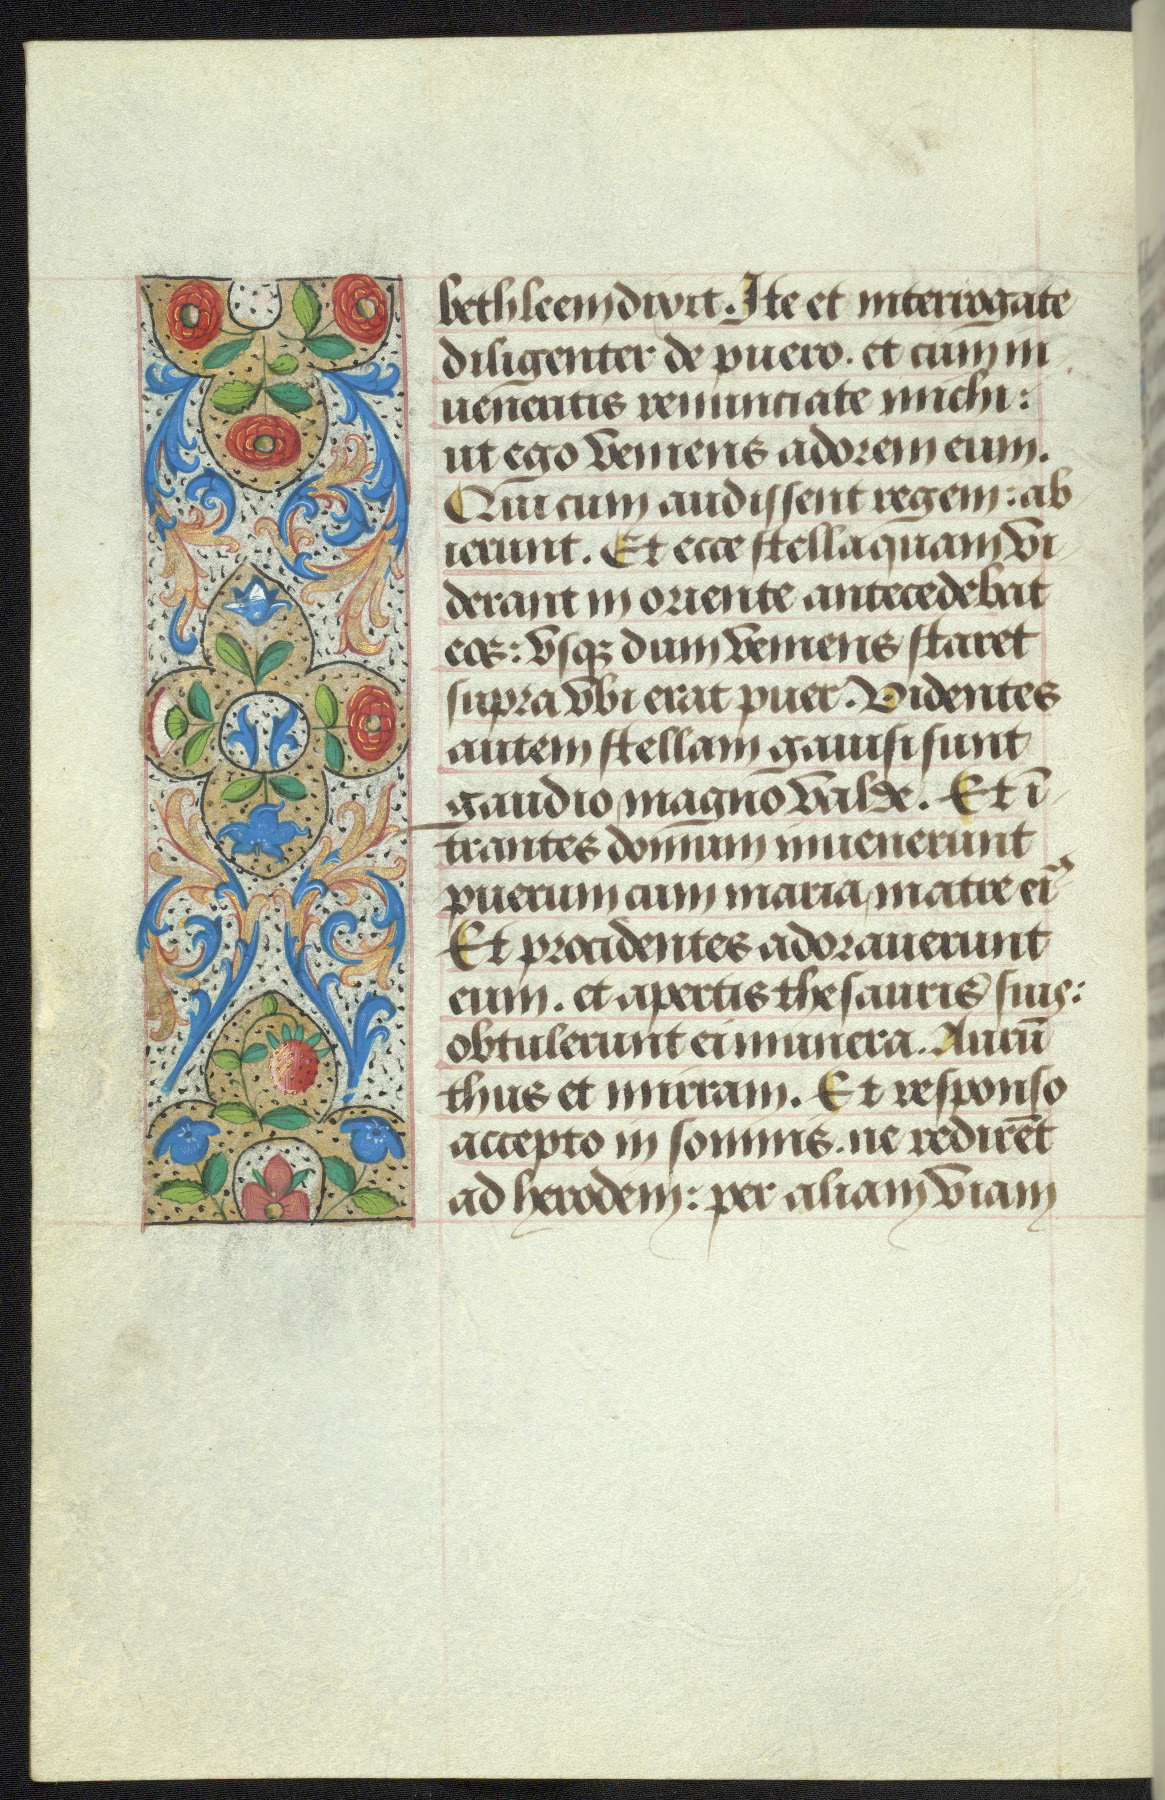 bethleem dixit. Ite et interrogate
diligenter de puero. et cum in
ueneritis renunciate michi:
ut ego veniens adorem eum.
Qui cum audissent regem: ab
ierunt. Et ecce stella quam vi
derant in oriente antecedebat
eos: vsqꝫ dum veniens staret
supra vbi erat puer. Videntes
autem stellam gauisi sunt
gaudio magno valde. Et ī
trantes domum inuenerunt
puerum cum maria matre eiꝰ
Et procidentes adorauerunt
eum. et apertis thesauris suis:
obtulerunt ei munera. Aurū
thus et mirram. Et responso
accepto in somnis. ne redirēt
ad herodem: per aliam viam